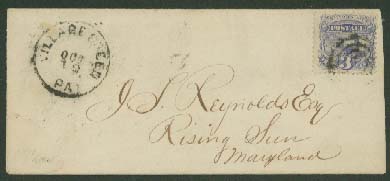 VILLAGE GREEN
OCT
19
PA.
POSTAGE
3
J. S. Reynolds Esq
Rising Sun
Maryland